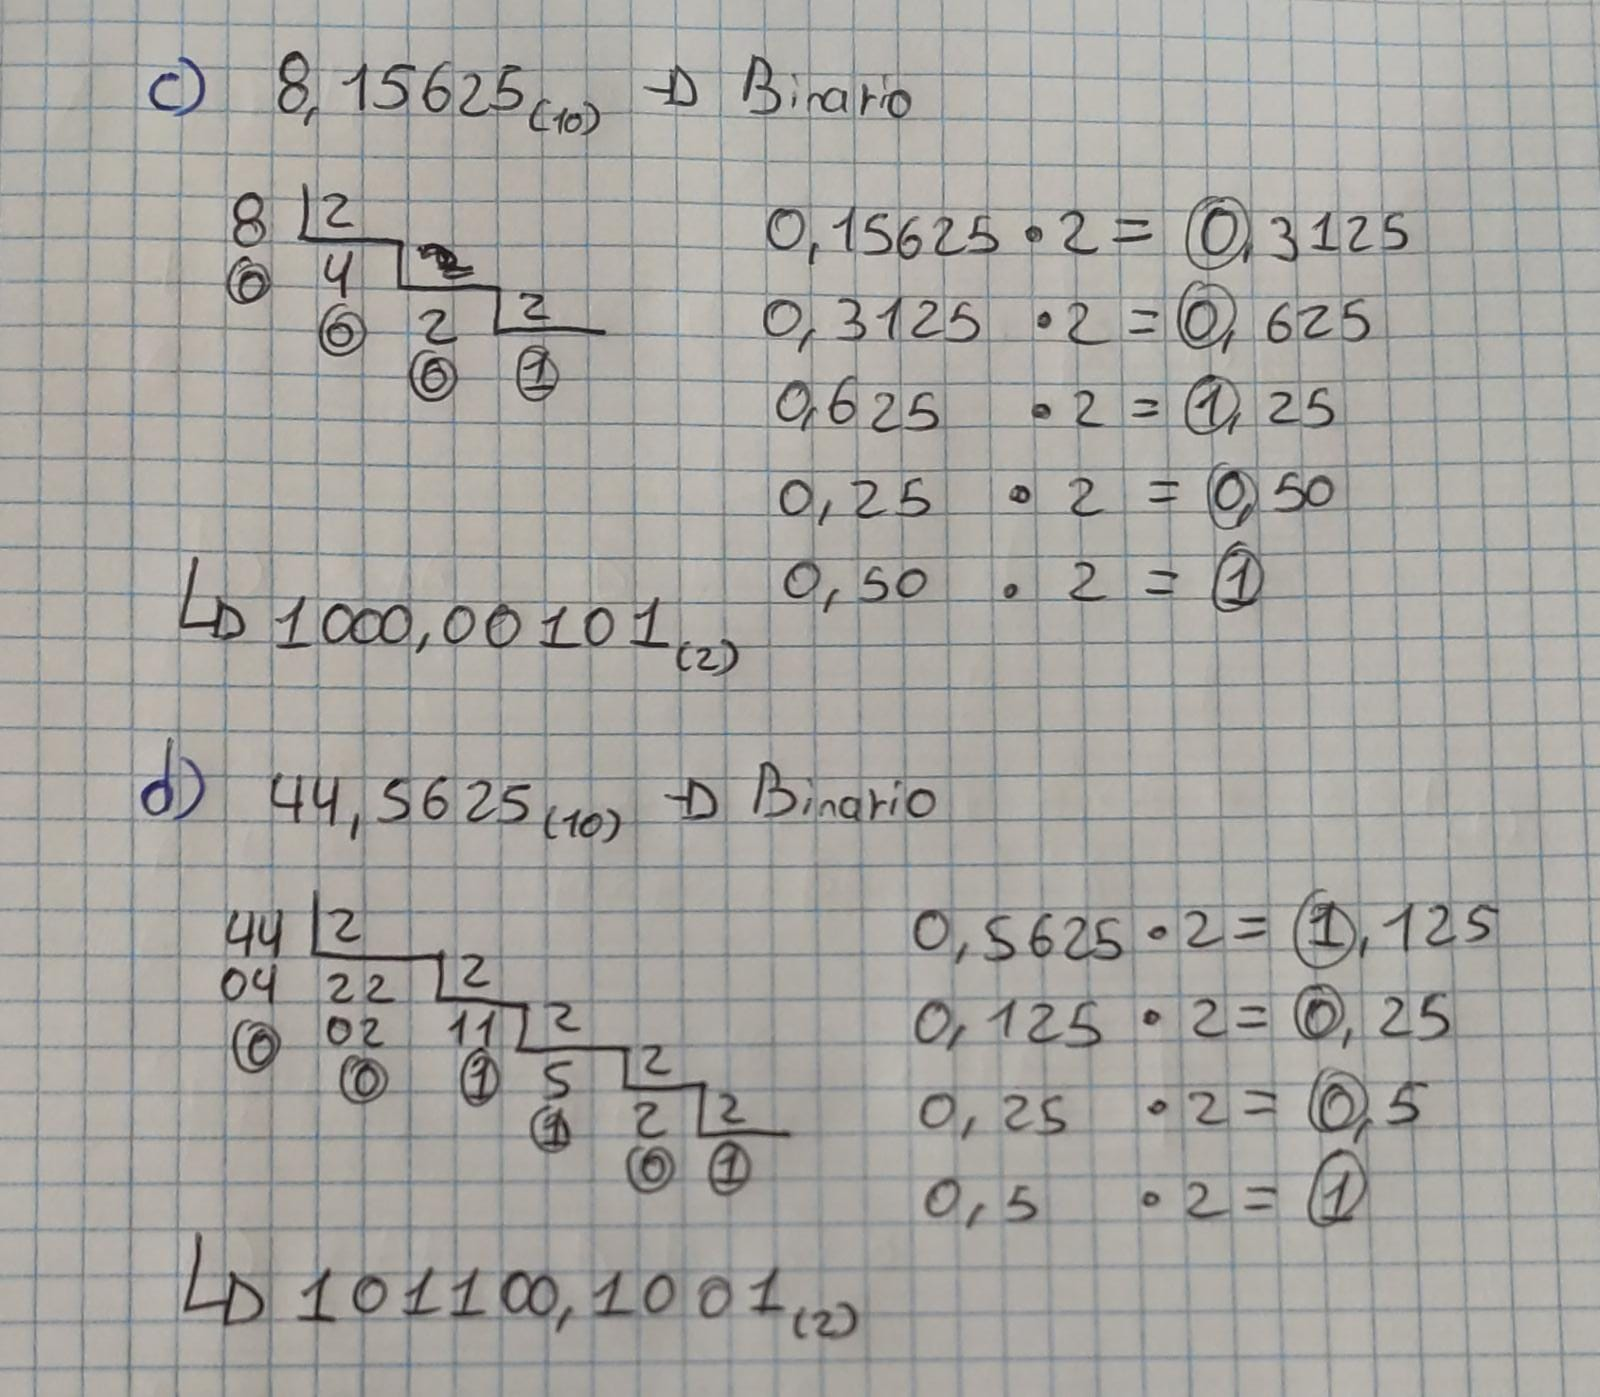 c) 8,15625(10) → Binario
8 2
0 4 2
0 2 2
0 1
0,15625 · 2 = 0,3125
0,3125 · 2 = 0,625
0,625 · 2 = 1,25
0,25 · 2 = 0,50
0,50 · 2 = 1
↳ 1000,00101(2)
d) 44,5625(10) → Binario
44 2
04 22 2
0 02 11 2
0 1 5 2
1 2 2
0 1
0,5625 · 2 = 1,125
0,125 · 2 = 0,25
0,25 · 2 = 0,5
0,5 · 2 = 1
↳ 101100,1001(2)